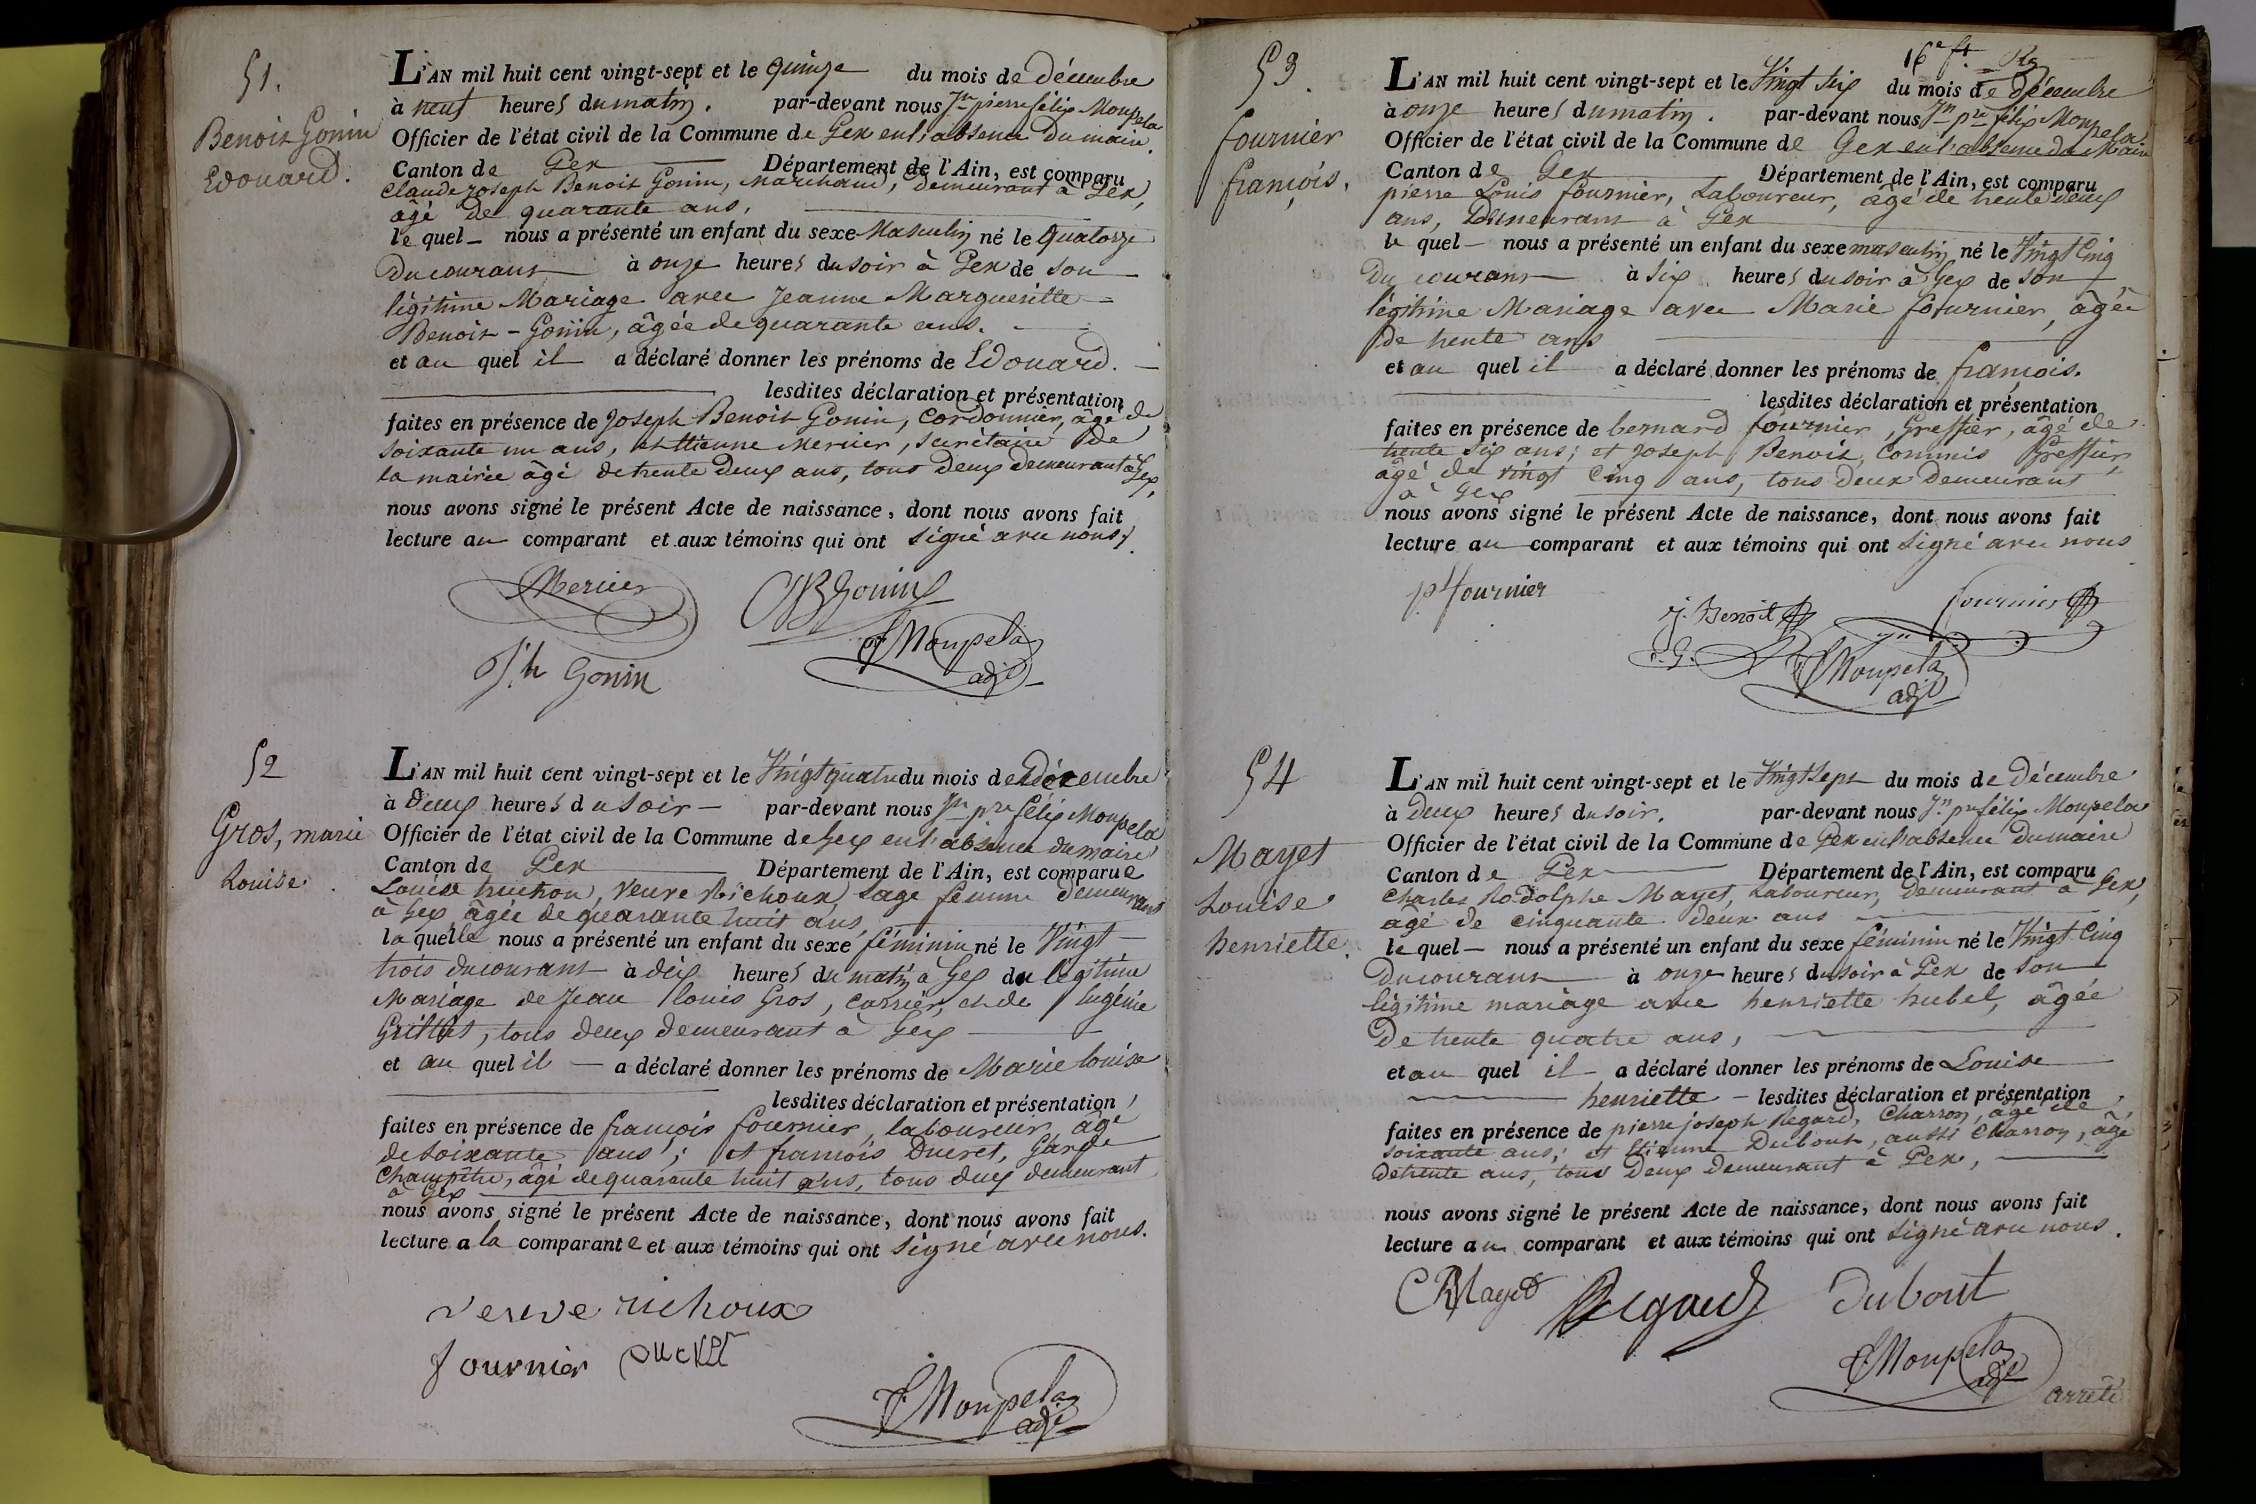 51.
Benoit Gonin
Edouard.
L'AN mil huit cent vingt-sept et le quinze du mois de décembre
à neuf heures du matin. par-devant nous Jn pierre félix Moupela
Officier de l'état civil de la Commune de Gex en l'absence du maire.
Canton de Gex Département de l'Ain, est comparu
Claude joseph Benoit Gonin, marchand, demeurant à Gex,
âgé de quarante ans,
le quel nous a présenté un enfant du sexe Masculin né le quatorze
du courant à onze heures du soir à Gex de son
légitime Mariage avec Jeanne Margueritte
Benoit-Gonin, âgée de quarante ans.
et au quel il a déclaré donner les prénoms de Edouard.
lesdites déclaration et présentation
faites en présence de Joseph Benoit Gonin, cordonnier, âgé de
soixante un ans, et Etienne Mercier, secrétaire de
la mairie âgé de trente deux ans, tous deux demeurant à Gex,
nous avons signé le présent Acte de naissance, dont nous avons fait
lecture au comparant et aux témoins qui ont signé avec nous.
Mercier
CJBGonin
Jh Gonin
fMoupela
adjt
52
Gros, marie
Louise.
L'AN mil huit cent vingt-sept et le Vingt quatre du mois de Décembre
à deux heures du soir par-devant nous Jn pre félix Moupela
Officier de l'état civil de la Commune de Gex en l'absence du maire
Canton de Gex Département de l'Ain, est comparue
Louise huchon, Veuve Richoux, Sage femme demeurant
à Gex, âgée de quarante huit ans,
la quelle nous a présenté un enfant du sexe féminin né le Vingt
trois du courant à dix heures du matin à Gex du légitime
Mariage de Jean louis Gros, carrier, et de Eugénie
tous deux demeurant à Gex
et au quel il a déclaré donner les prénoms de Marie louise
lesdites déclaration et présentation
faites en présence de françois fournier, laboureur, âgé
de soixante ans; et françois Ducret, Garde
Champêtre, âgé de quarante huit ans, tous deux demeurant
à Gex
nous avons signé le présent Acte de naissance, dont nous avons fait
lecture a la comparante et aux témoins qui ont signé avec nous.
veuve richoux
fournier Ducret
fMoupela
adjt
16e ft.
53.
fournier
françois.
L'AN mil huit cent vingt-sept et le Vingt six du mois de décembre
à onze heures du matin. par-devant nous Jn pre félix Moupela
Officier de l'état civil de la Commune de Gex en l'absence du Maire
Canton de Gex Département de l'Ain, est comparu
pierre Louis fournier, Laboureur, âgé de trente deux
ans, Demeurant à Gex
le quel nous a présenté un enfant du sexe masculin né le Vingt Cinq
du courant à six heures du soir à Gex de son
légitime Mariage avec Marie fournier, âgée
de trente ans
et au quel il a déclaré donner les prénoms de françois.
lesdites déclaration et présentation
faites en présence de bernard fournier, Greffier, âgé de
trente six ans; et Joseph Benoit, Commis Greffier,
âgé de vingt cinq ans, tous deux Demeurant
à Gex
nous avons signé le présent Acte de naissance, dont nous avons fait
lecture au comparant et aux témoins qui ont signé avec nous
plfournier
j. Benoit
c. G.
fournier
fMoupela
adjt
54
Mayet
Louise
henriette.
L'AN mil huit cent vingt-sept et le Vingt Sept du mois de Décembre
à deux heures du soir. par-devant nous Jn pre félix Moupela
Officier de l'état civil de la Commune de Gex en l'absence du maire
Canton de Gex Département de l'Ain, est comparu
Charles Rodolphe Mayet, Laboureur, demeurant à Gex,
âgé de cinquante deux ans
le quel nous a présenté un enfant du sexe féminin né le Vingt Cinq
du courant à onze heures du soir à Gex de son
légitime mariage avec henriette hubel, âgée
De trente quatre ans,
et au quel il a déclaré donner les prénoms de Louise
henriette lesdites déclaration et présentation
faites en présence de pierre joseph Regard, Charron, âgé de
soixante ans; et Etienne Dubout, aussi Charron, âgé
de trente ans, tous deux demeurant à Gex,
nous avons signé le présent Acte de naissance, dont nous avons fait
lecture au comparant et aux témoins qui ont signé avec nous.
CRMayet Regard Dubout
fMoupela
adjt
arrêté